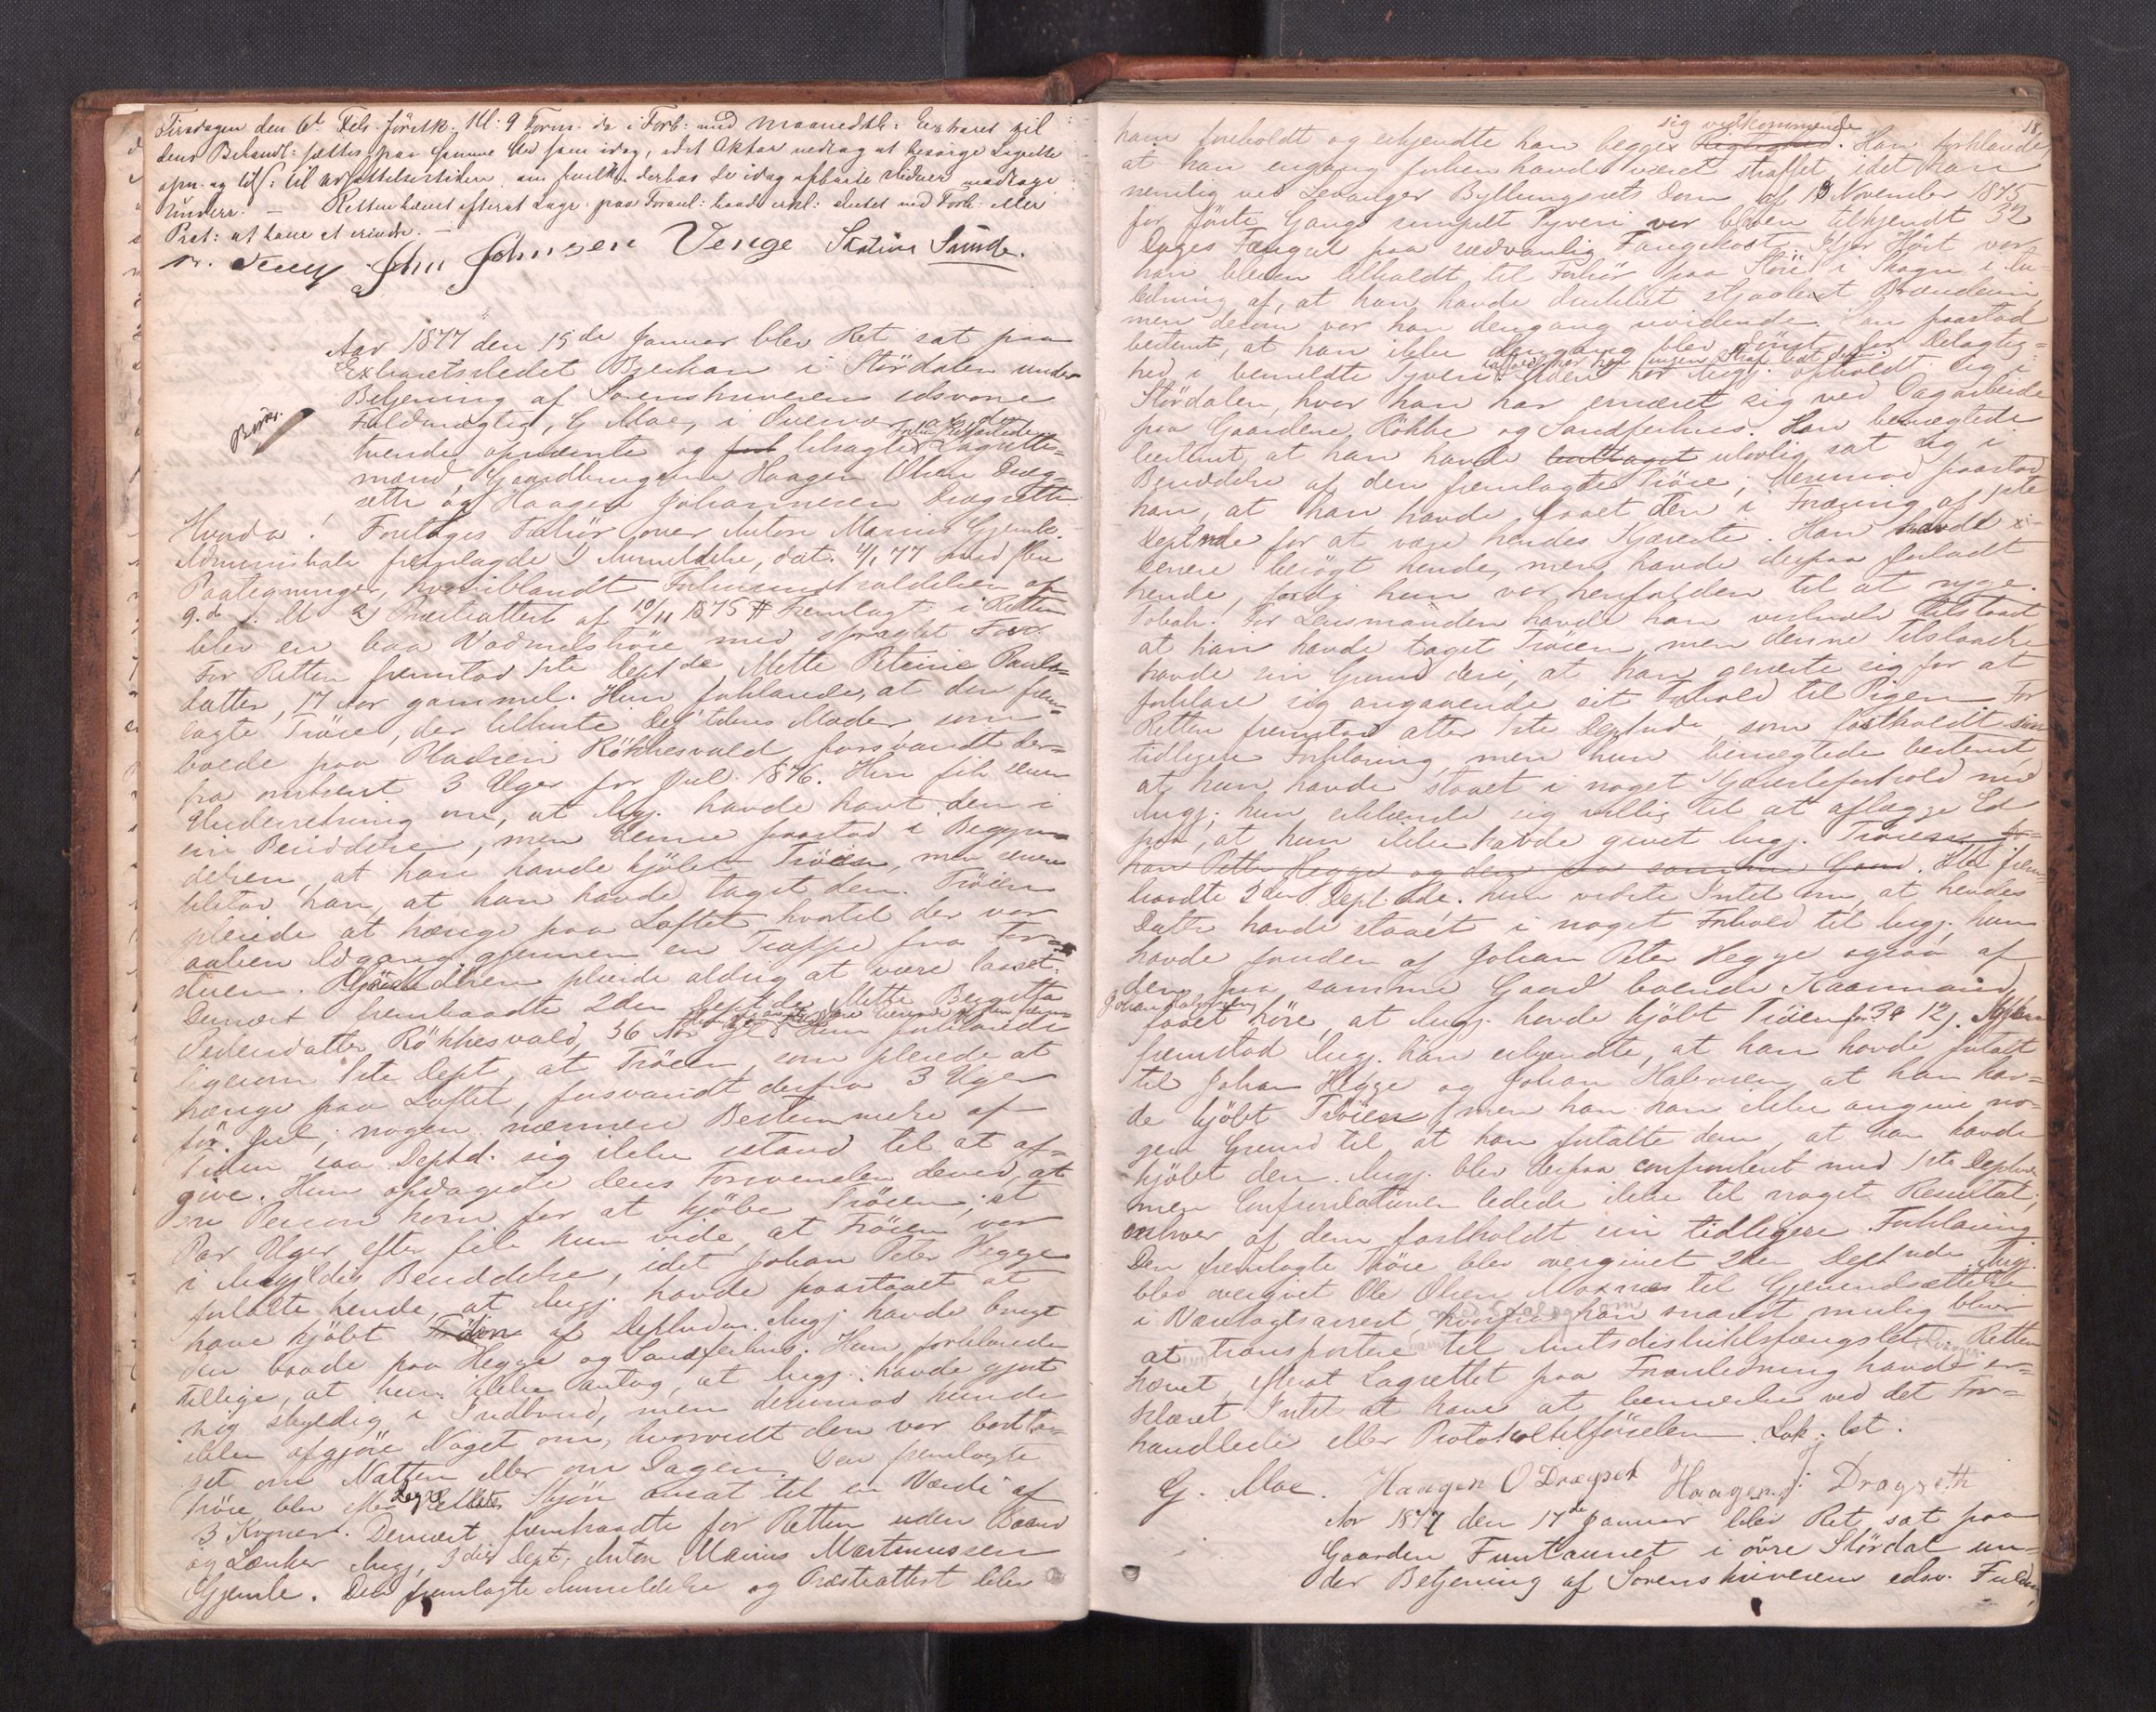 Tirsdagen den 6te Feb. förstk: Kl: 9 Form. da i Forb: med maanedstl: Extraret til
dens Behandl: sættes paa samme Sted som idag, idet Aktor vedtog at besørge
til
Underr. — Retten hævet efterat Lagr. paa Foranl: havde erkl: Intet ved Forh: eller
Prot: at have at erindre. —
John Johnsen Venge
Aar 1877 den 15de Januar blev Ret sat paa
Extraretsstedet Bjerkan i Stördalen under
Betjening af Sorenskriverens edsvorne
Fuldmægtig, G Moe, i Overvær af de
tvende opnævnte og tilsagte Lagrettes-
mænd, Gaardbrugerne Haagen Olsen Dræg-
sette og Haagen Johannesen Drægsette
Hvorda! Foretoges Forhör over Anton Marius Gjemle.
Administrator fremlagde 1) Anmeldelse, dat. 4/1 77 med flere
Paategninger, hvoriblandt Forhörsanstændelsen af
9.de d. M 2) Præsteattest af 10/11 1875 # Fremlagt i Retten
blev en blaa Vadmelströie med spraglet Foer.
For Retten fremstod 1ste Deptde Mette Petrine Pauls-
datter, 17 Aar gammel. Hun forklarede, at den frem-
lagte Tröie, der tilhörte Deptdens Moder, som
boede paa Pladsen Rökkesvald, forsvandt der-
fra omtrent 3 Uger for Jul 1876. Hun fik senere
Underretning om, at Angj. havde havt den i
sin Besiddelse, men denne paastod i Begyn-
delsen, at han havde kjöbt Tröien, men senere
tilstod han, at han havde taget den. Tröien
pleiede at hænge paa Loftet, hvortil der var
aaben Adgang gjennem en Trappe fra For-
stuen. Yderdören pleiede aldrig at være laaset.
Dernæst fremkaldte 2den Deptde Mette Bergitta
Pedersdatter Rökkesvald, 56 Aar gl. Hun forklarede
ligesom 1ste Dept, at Tröien, som pleiede at
hænge paa Loftet, forsvandt derfra 3 Uger
för Jul; nogen nærmere Bestemmelse af
Tiden saa Deptd. sig ikke istand til at af-
give. Hun opdagede dens Forsvinden derved, at
en Person kom for at kjöbe Tröien; et
Par Uger efter fik hun vide, at Tröien var
i Angjeldtes Besiddelse, idet Johan Peter Hegge
fortalte hende, at Angj. havde paastaaet at
have kjöbt Tröien af Deptnden. Angj havde brugt
den baade paa Hegge og Sandferhus. Hun forklarede
tillige, at hun ikke antog, at Angj. havde gjort
sig skyldig i Indbrud, men derimod kunde
ikke afgjöre Noget om, hvorvidt den var bortta-
get om Natten eller om Dagen. Den fremlagte
Tröie blev efter Lagrettets Skjön ansat til en Værdi af
3 Kroner. Dernæst fremkaldte for Retten uden Baand
og Lænker Angj, 3die Dept, Anton Marius Martinussen
Gjemle. Den fremlagte Anmeldelse og Præsteattest blev
18.
sig vedkommende
ham foreholdt og erkjendte han begges Rigtighed. Han forklarede,
at han engang forhen havde været straffet, idet han
nemlig ved Levanger Byllungsrets Dom af 10 November 1875
for förste Gangs simpelt Tyveri var bleven tilkjendt 32
Dages Fængsel paa sædvanlig Fangekost. Ifjor Höst var
han bleven tilholdt til Forhör paa Störe i Skogn i An-
ledning af, at han havde drukket stjaalent Brændevin,
men derom var han dengang uvidende. Han paastod
bestemt, at han ikke dengang blev dömt for Delagtig-
hed i bemeldte Tyveri. Siden har Angj. opholdt sig i
Stördalen, hvor han har ernæret sig ved Dagarbeide
paa Gaardene Rökke og Sandferhus. Han benægtede
bestemt, at han havde borttaget ulovlig sat sig i
Besiddelse af den fremlagte Tröie; derimod paastod
han, at han havde faaet den i Foræring af 1ste
Deptnde for at være hendes Kjæreste. Han havde
senere besögt hende, men havde derpaa forladt
hende, fordi hun var henfalden til at ryge
Tobak. For Lensmanden havde han vistnok tilstaaet
at han havde taget Tröien, men denne Tilstaaelse
havde sin Grund deri, at han generte sig for at
forklare sig angaaende sit Forhold til Pigen. For
Retten fremstod atter 1ste Deptnde, som fastholdt sin
tidligere Forklaring, men hun benægtede bestemt,
at hun havde staaet i noget Kjæresteforhold med
Angj; hun erklærede sig villig til at aflægge Ed
paa, at hun ikke havde givet Angj. Tröien
Johan Peter Hegge og den paa samme Gaard. Atter frem-
kaldte 2den Deptnde. Hun vidste Intet om, at hendes
Datter havde staaet i noget Forhold til Angj; hun
havde foruden af Johan Peter Hegge ogsaa af
den paa samme Gaard boende Kaarmand
Johan Halvorsen
faaet höre, at Angj. havde kjöbt Tröien for 3 12 s. Atter
fremstod Angj. Han erkjendte, at han havde fortalt
til Johan Hegge og Johan Halvorsen, at han hav-
de kjöbt Tröien, men han kan ikke angive no-
gen Grund til, at han fortalte dem, at han havde
kjöbt den. Angj. blev derpaa confronteret med 1ste Deptnde
men Confrontationen ledede ikke til noget Resultat;
enhver af dem fastholdt sin tidligere Forklaring.
Den fremlagte Tröie blev overgivet 2den Deptnde. Angj.
blev overgivet Ole Olsen Moxnes til Gjenindsættelse
i Varetægtsarrest, hvorfra han snarest mulig bliver
at transportere til Amtsdistriktsfængslet. Retten
hævet, efterat Lagrettet paa Foranledning havde er-
klæret Intet at have at bemærke ved det For-
handlede eller Protokoltilförselen. Lok. let.
G. Moe. Haagen O Drægset Haagen J Dragseth
Aar 1877 den 17de Januar blev Ret sat paa
Gaarden Funtaunet i övre Stördal un-
der Betjening af Sorenskriverens edsv. Fuldm,